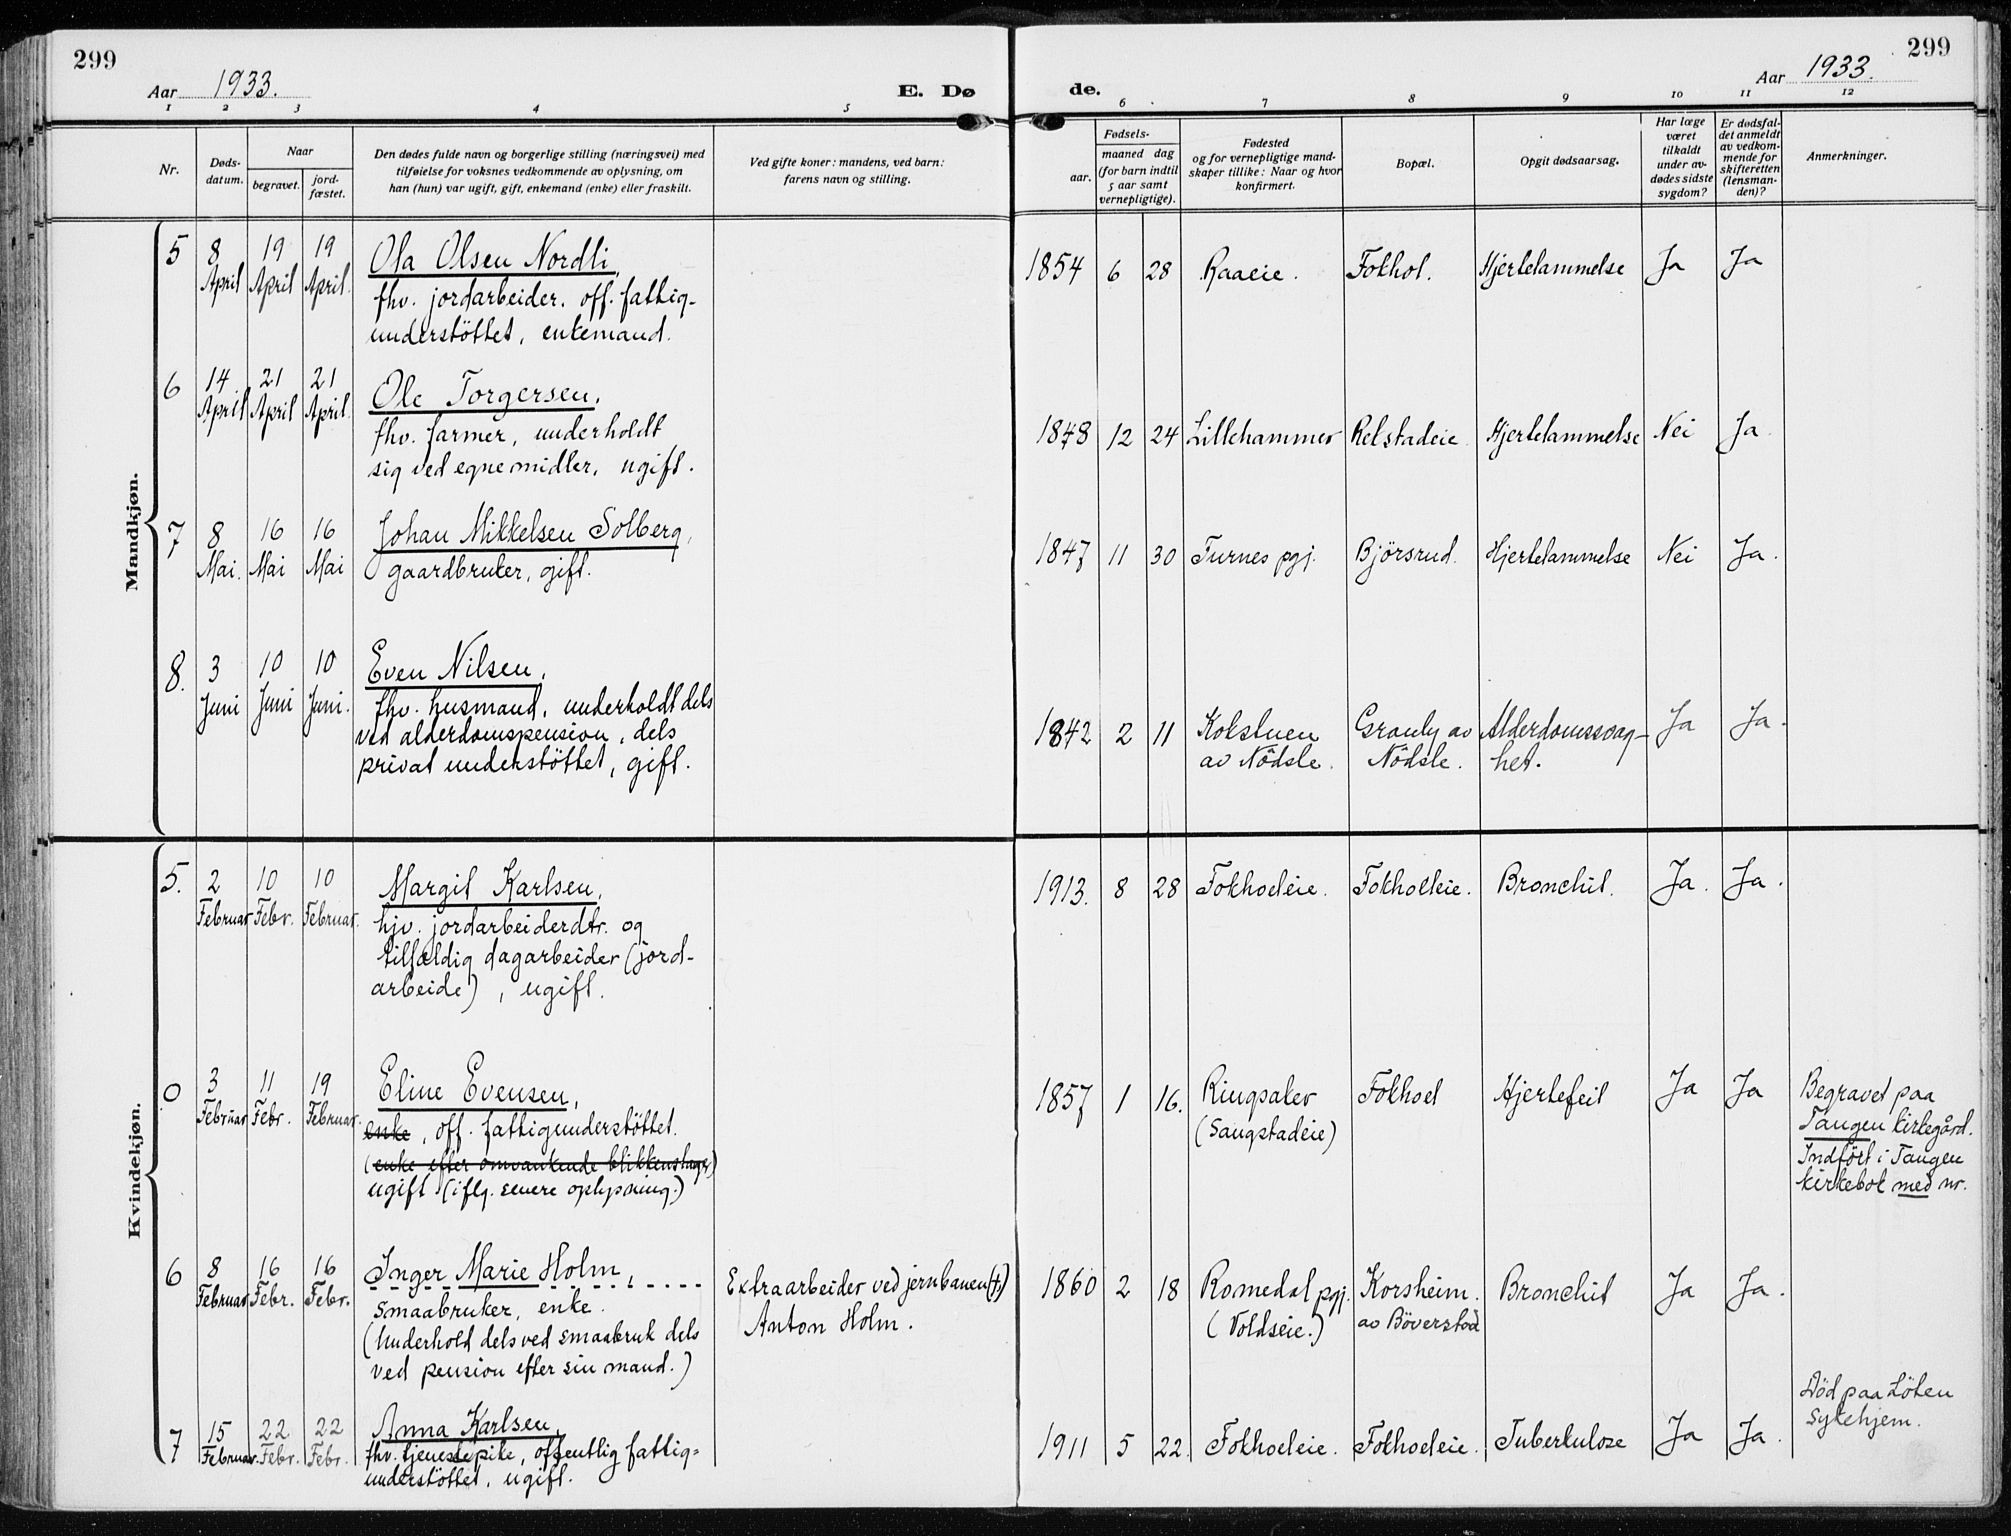 299
Aar 1933.
E. Dø
de.
Aar 1933.
299
1 2 3 4 5 6 7 8 9 10 11 12
Nr.
Døds-
datum.
Naar
begravet.
jord-
fæstet.
Den dødes fulde navn og borgerlige stilling (næringsvei) med
tilføielse for voksnes vedkommende av oplysning, om
han (hun) var ugift, gift, enkemand (enke) eller fraskilt.
Ved gifte koner: mandens, ved barn:
farens navn og stilling.
Fødsels-
aar.
maaned dag
(for barn indtil
5 aar samt
vernepligtige).
Fødested
og for vernepligtige mand-
skaper tillike: Naar og hvor
konfirmert.
Bopæl.
Opgit dødsaarsag.
Har læge
været
tilkaldt
under av-
dødes sidste
sygdom?
Er dødsfal-
det anmeldt
av vedkom-
mende for
skifteretten
(lensman-
den)?
Anmerkninger.
Mandkjøn.
5 8 19 19 Ola Olsen Nordli,
April April April.
fhv. jordarbeider. off. fattig-
understöttet, enkemand.
1854 6 28 Raaeie. Fokhol. Hjertelammelse Ja Ja
6 14. 21 21 Ole Torgersen,
April April April.
fhv. farmer, underholdt
sig ved egne midler, ugift.
1848 12 24 Lillehammer Relstadeie. Hjertelammelse Nei Ja.
7 8 16 16 Johan Mikkelsen Solberg,
Mai. Mai Mai
gaardbruker, gift.
1847 11 30 Furnes pgj. Björsrud. Hjertelammelse Nei Ja.
8. 3 10 10 Even Nilsen,
Juni Juni Juni.
fhv. husmand, underholdt dels
ved alderdomspension, dels
privat understöttet, gift.
1842 2 11 Kokstuen Granly av Alderdomssvag- Ja Ja.
av Nödsle. Nödsle. het.
Kvindekjøn.
5. 2 10 10 Margit Karlsen,
Februar Febr. Februar.
hjv. jordarbeiderdtr. og
tilfældig dagarbeider (jord-
arbeide), ugift.
1913. 8 28 Fokholeie. Fokholeie. Bronchit. Ja. Ja.
0 3 11 19 Eline Evensen,
Februar Febr. Februar.
enke, off. fattigunderstöttet.
(enke efter omvankende blikkenslager)
ugift (iflg. senere oplysning.)
1857 1 16. Ringsaker Fokhol Hjertefeil Ja Ja
(Saugstadeie)
Begravet paa
Tangen kirkegård.
Indfört i Tangen
kirkebok med nr.
6 8 16 16 Inger Marie Holm,
Februar Febr. Febr.
smaabruker, enke.
(Underhold dels ved smaabruk dels
ved pension efter sin mand.)
Extraarbeider ved jernbanen (†.)
Anton Holm.
1860 2 18 Romedal pgj. Korsheim. Bronchit Ja Ja.
(Voldseie.) av Böverstad
7 15 22 22 Anna Karlsen,
Februar. Febr. Febr.
fhv. tjenestepike, offentlig fattig-
understöttet, ugift.
1911 5 22. Fokholeie. Fokholeie. Tuberkulose Ja Ja.
Död paa Löten
sykehjem.